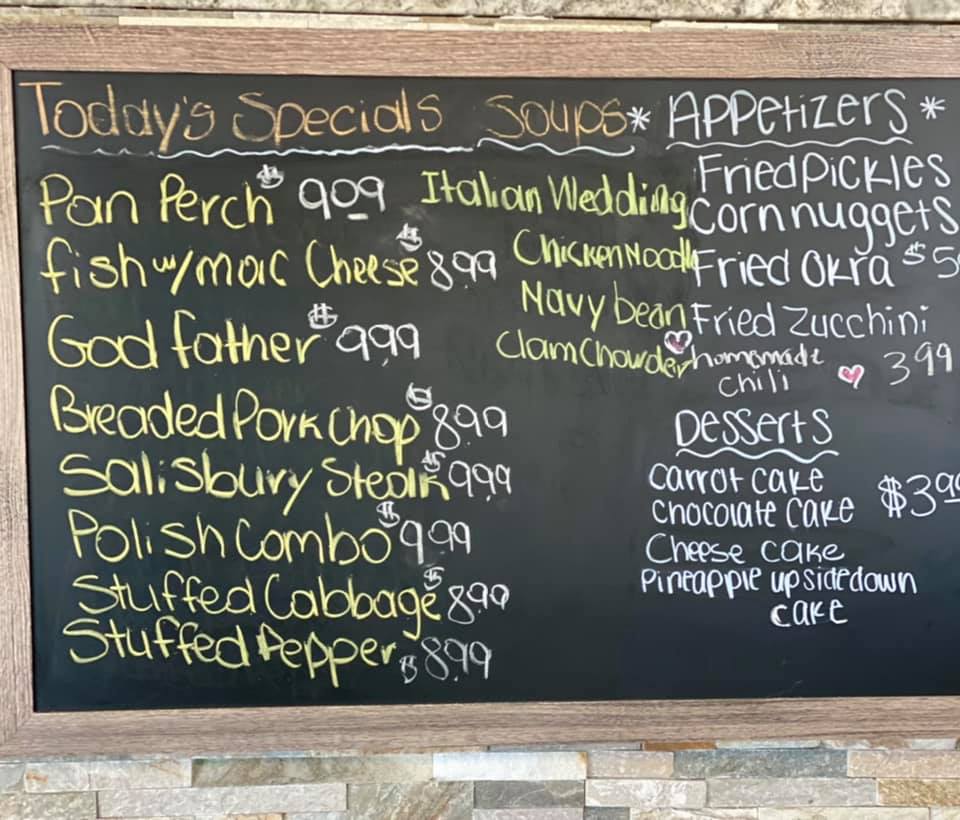 Today's Specials
Pan Perch $ 909
fish w/ mac Cheese $ 8.99
God father $ 999
Breaded Pork Chop $ 8.99
Salisbury Steak $ 9.99
Polish Combo $ 999
Stuffed Cabbage $ 8.99
Stuffed Pepper $ 8.99
Soups
Italian Wedding
Chicken Noodle
Navy bean
Clam Chowder
* Appetizers *
Fried Pickles
Corn nuggets
Fried Okra $5
Fried Zucchini
homemade
chili 3.99
Desserts
carrot cake
chocolate cake $3.99
Cheese cake
Pineapple upside down
cake